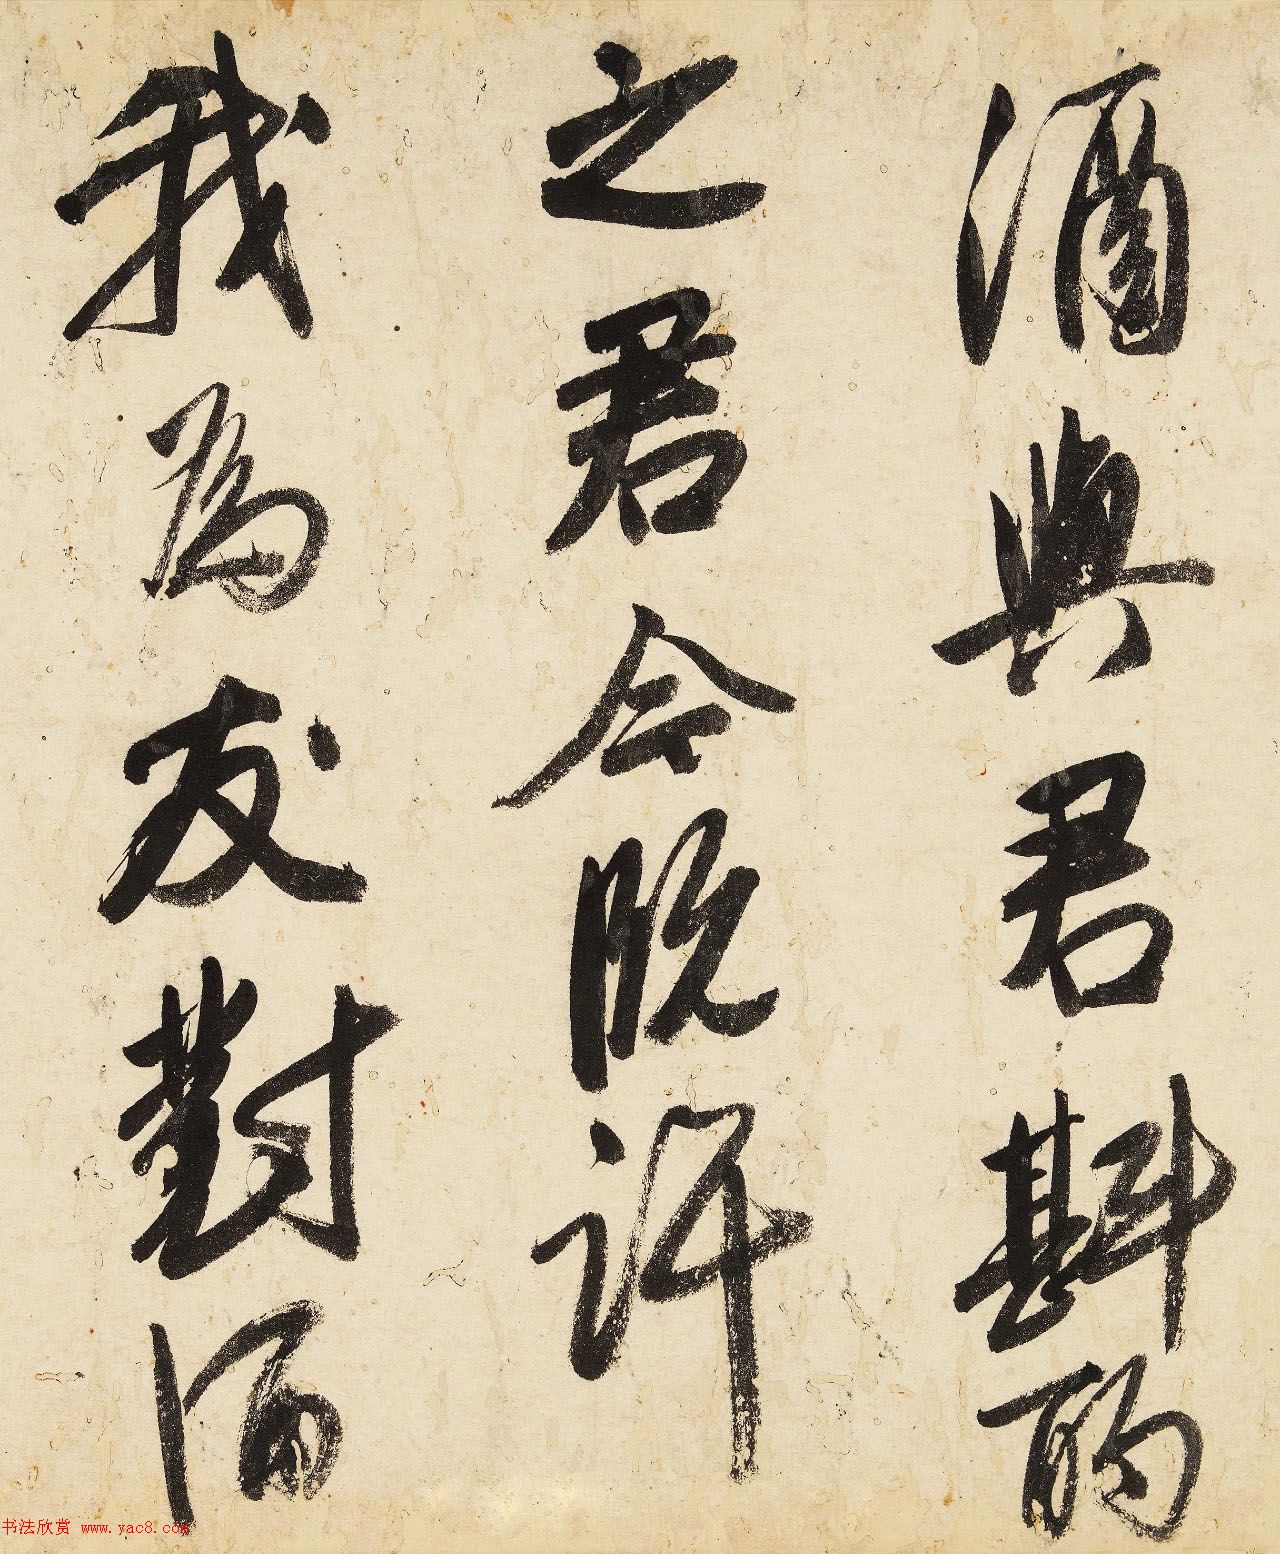 酒與君斟酌
之君今既許
我為友對酒
书法欣赏 www.yac8.com